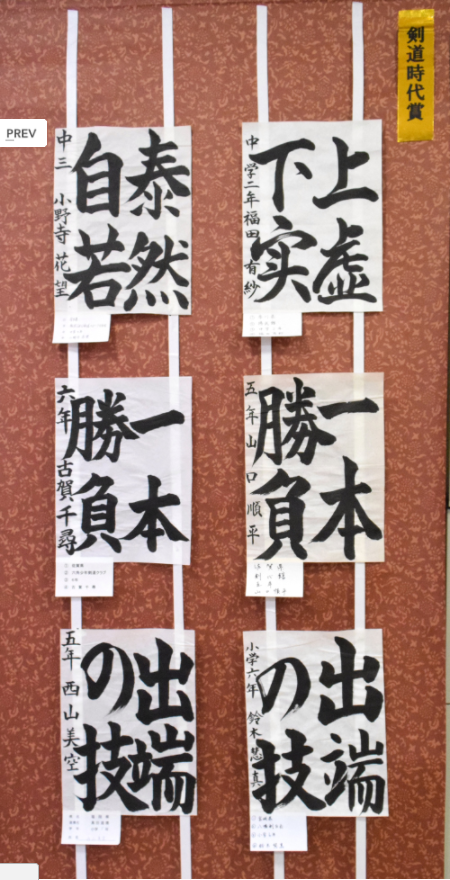 剣道時代賞
PREV
上虚
下実
中学二年 福田有紗
泰然
自若
中三 小野寺花望
一本
勝負
五年 山口順平
一本
勝負
六年 古賀千尋
出端
の技
小学六年 鈴木
出端
の技
五年 西山美空